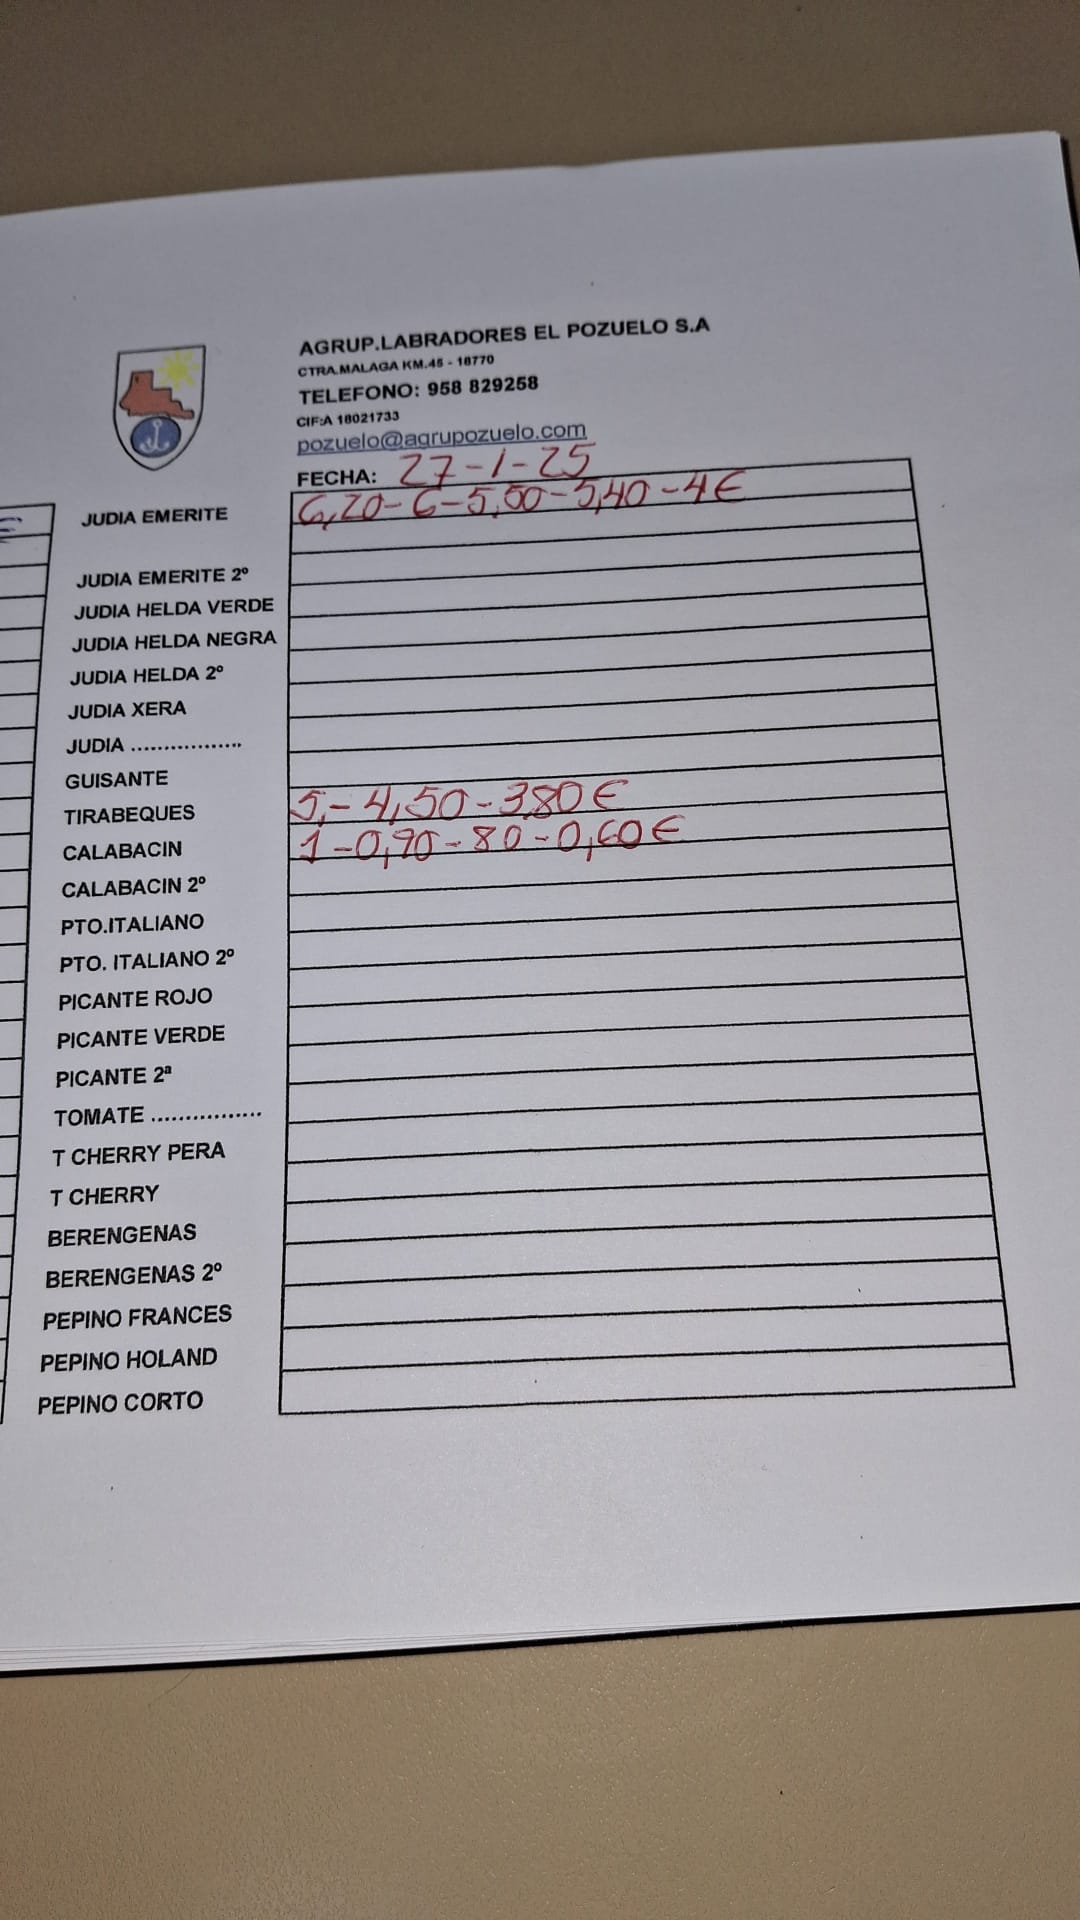 AGRUP.LABRADORES EL POZUELO S.A
CTRA.MALAGA KM.45 - 18770
TELEFONO: 958 829258
CIF:A 18021733
pozuelo@agrupozuelo.com
FECHA: 27-1-25
JUDIA EMERITE 6,20-6-5,50-5,40-4€
JUDIA EMERITE 2º
JUDIA HELDA VERDE
JUDIA HELDA NEGRA
JUDIA HELDA 2º
JUDIA XERA
JUDIA ..................
GUISANTE
TIRABEQUES 5,-4,50-3,80€
CALABACIN 1-0,90-80-0,60€
CALABACIN 2º
PTO.ITALIANO
PTO. ITALIANO 2º
PICANTE ROJO
PICANTE VERDE
PICANTE 2ª
TOMATE ................
T CHERRY PERA
T CHERRY
BERENGENAS
BERENGENAS 2º
PEPINO FRANCES
PEPINO HOLAND
PEPINO CORTO